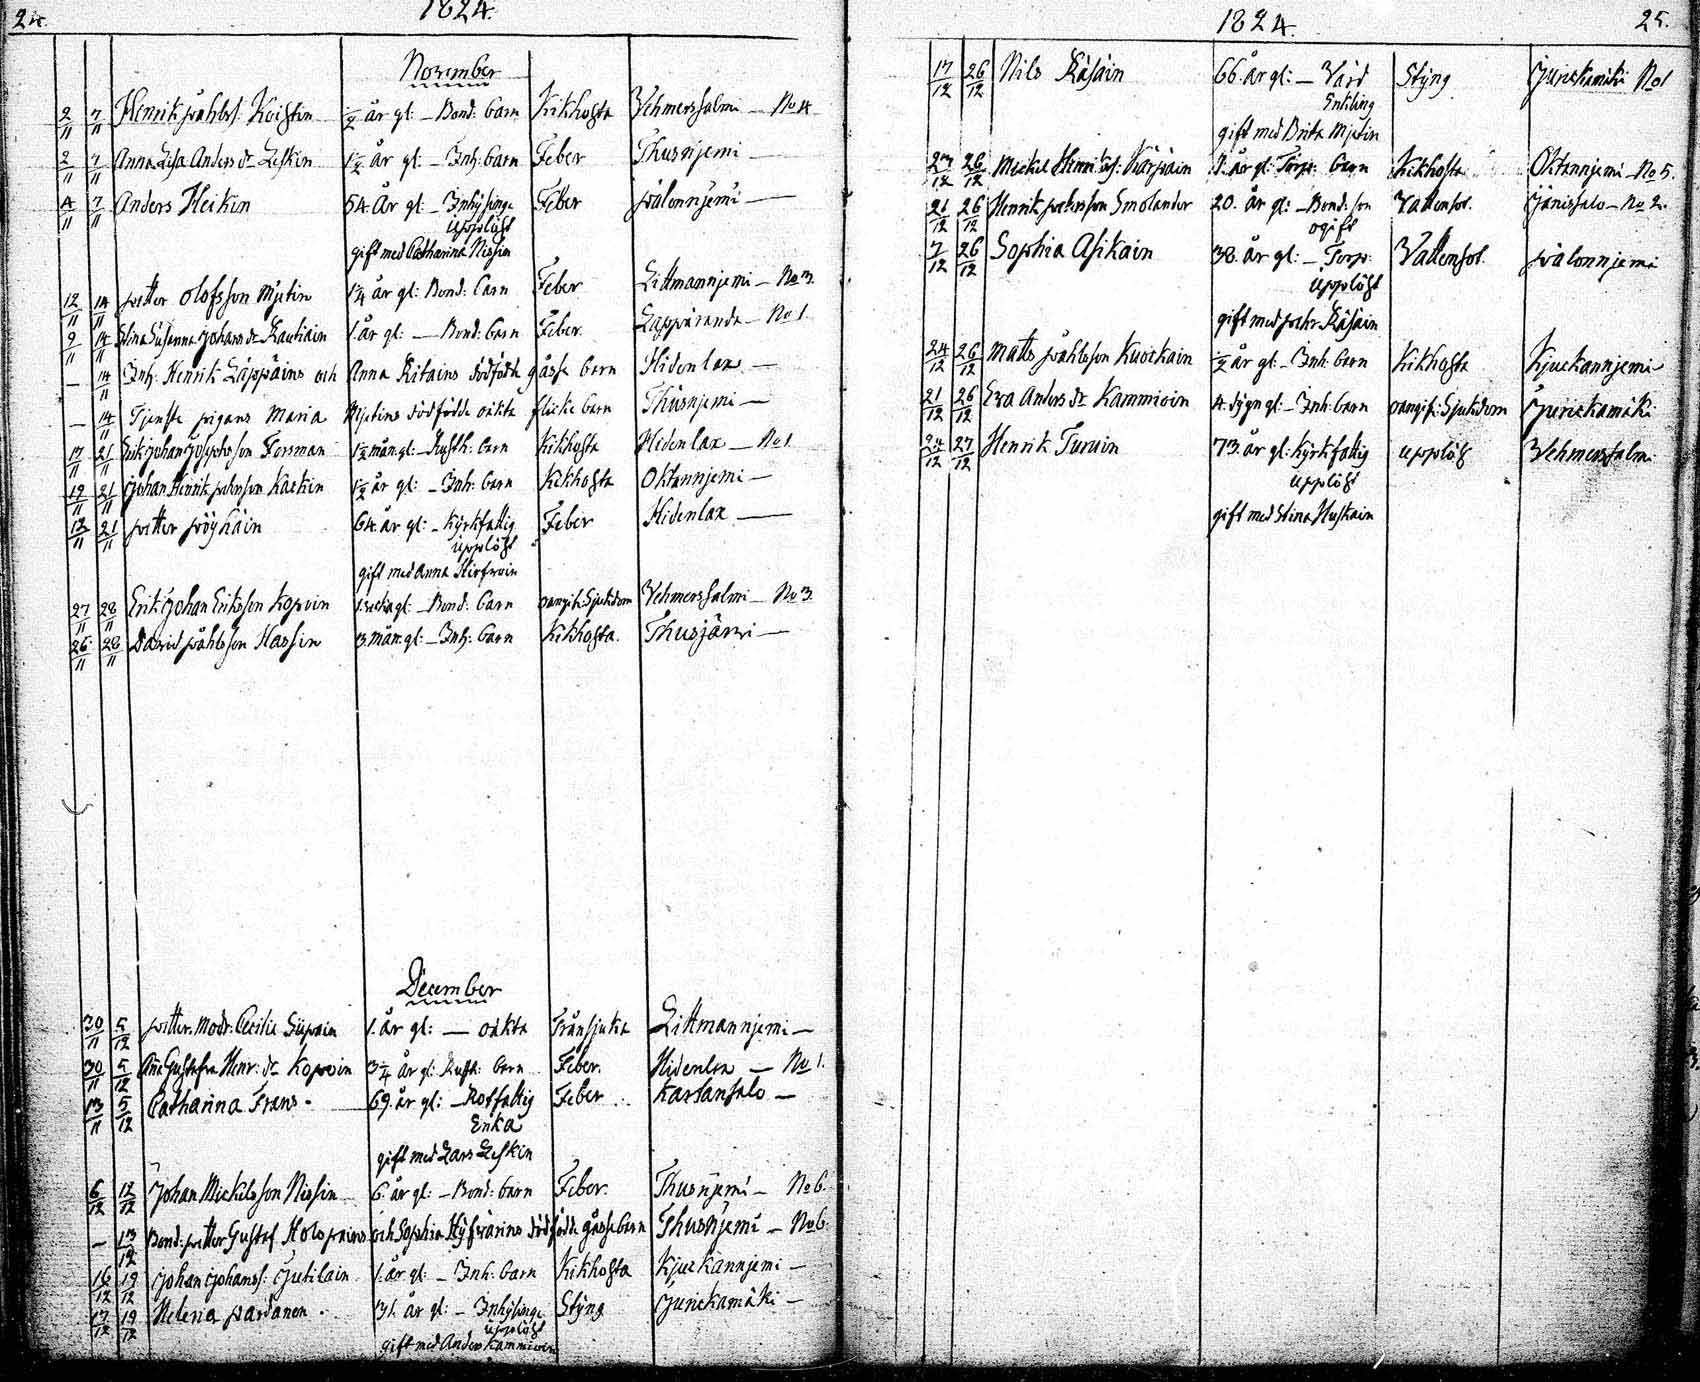 24. 1824.
November
2/11 7/11 Henrik Påhls: Koistin 1/2 år gl: – Bond: barn Kikhosta Vehmersalmi – No 4
2/11 7/11 Anna Lisa Anders dr Leskin 1 1/2 år gl: – Inh: barn Feber Thusnjemi –
4/11 7/11 Anders Heikin 54. år gl – Inhysinge Feber Pålonnjemi –
upplöst
gift med Catharina Nissin
12/11 14/11 Petter Olofsson Mjetin 1 1/4 år gl: Bond: barn Feber Littmannjemi – No 3.
9/11 14/11 Stina Susanna Johans dr Rautiain 1. år gl: – Bond: barn Feber Lappäranda – No 1
– 14/11 Inh: Henrik Läppäins och Anna Ritains dödfödde gåsse barn Hidenlax –
– 14/11 Tjenste pigans Maria Mjetins dödfödde oäkta flicke barn Thusnjemi –
17/11 21/11 Erik Johan Josephsson Forsman 1 1/2 mån: gl: – Rusth: barn Kikhosta Hidenlax – No 1
19/11 21/11 Johan Henrik Pehrsson Kaskin 1 1/2 år gl: – Inh: barn Kikhosta Oktannjemi –
12/11 21/11 Petter Pöyhäin 64. år gl: – Kyrkfattig Feber Hidenlax –
upplöst
gift med Anna Hirfwoin
27/11 28/11 Erik Johan Eriksson Kopoin 1. wecka gl: – Bond: barn oangif: Sjukdom Vehmersalmi – No 3.
26/11 28/11 David Påhlsson Hassin 3. mån: gl: – Inh: barn Kikhosta. Thusjärwi –
December
30/11 5/12 Petter. Modr: Cecilia Siipoin 1. år gl: – oäkta Trånsjuka Littmannjemi –
30/11 5/12 Aña Gustafva Henr: dr Kopoin 3 1/4 år gl: Rusth: barn Feber. Hidenlax – No 1.
13/11 5/12 Catharina Frans 69. år gl: – Rotfattig Feber Kartansalo –
Enka
gift med Lars Leskin
6/12 12/12 Johan Mickelsson Nissin 6. år gl: – Bond: barn Feber. Thusnjemi – No 6.
– 13/12 Bond: Petter Gustaf Holopains och Sophia Hyfwärins dödfödde gåsse barn Thusnjemi – No 6.
16/12 19/12 Johan Johans: Jutilain 1. år gl: – Inh: barn Kikhosta Kjuckännjemi –
17/12 19/12 Helena Pardanen 31. år gl: – Inhysinge Styng Jurickamäki –
upplöst
gift med Anders Kammioin
1824. 25.
17/12 26/12 Nils Räsäin 66. år gl: – Värd Styng Jurickamäki No 1
Enkling
gift med Brita Mjetin
23/12 26/12 Mickel Henrikss: Kärpäin 1. år gl: Torp: barn Kikhosta Oktannjemi – No 5.
21/12 26/12 Henrik Pehrsson Smolander 20. år gl: – Bond: son Vattensot. Jänissalo – No 2.
ogift
7/12 26/12 Sophia Asikain 38. år gl: – Torp: Vattensot. Pålonnjemi
upplöst
gift med Pehr Räsäin
24/12 26/12 Matts Påhlsson Kuorkain 1/2 år gl: – Inh: barn Kikhosta Kjuckannjemi
21/12 26/12 Eva Anders dr Kammioin 4. dygn gl: – Inh: barn oangif: Sjukdom Jurickamäki
24/12 27/12 Henrik Turuin 73. år gl: Kyrkfattig upplöst Vehmersalmi
upplöst
gift med Stina Huskain